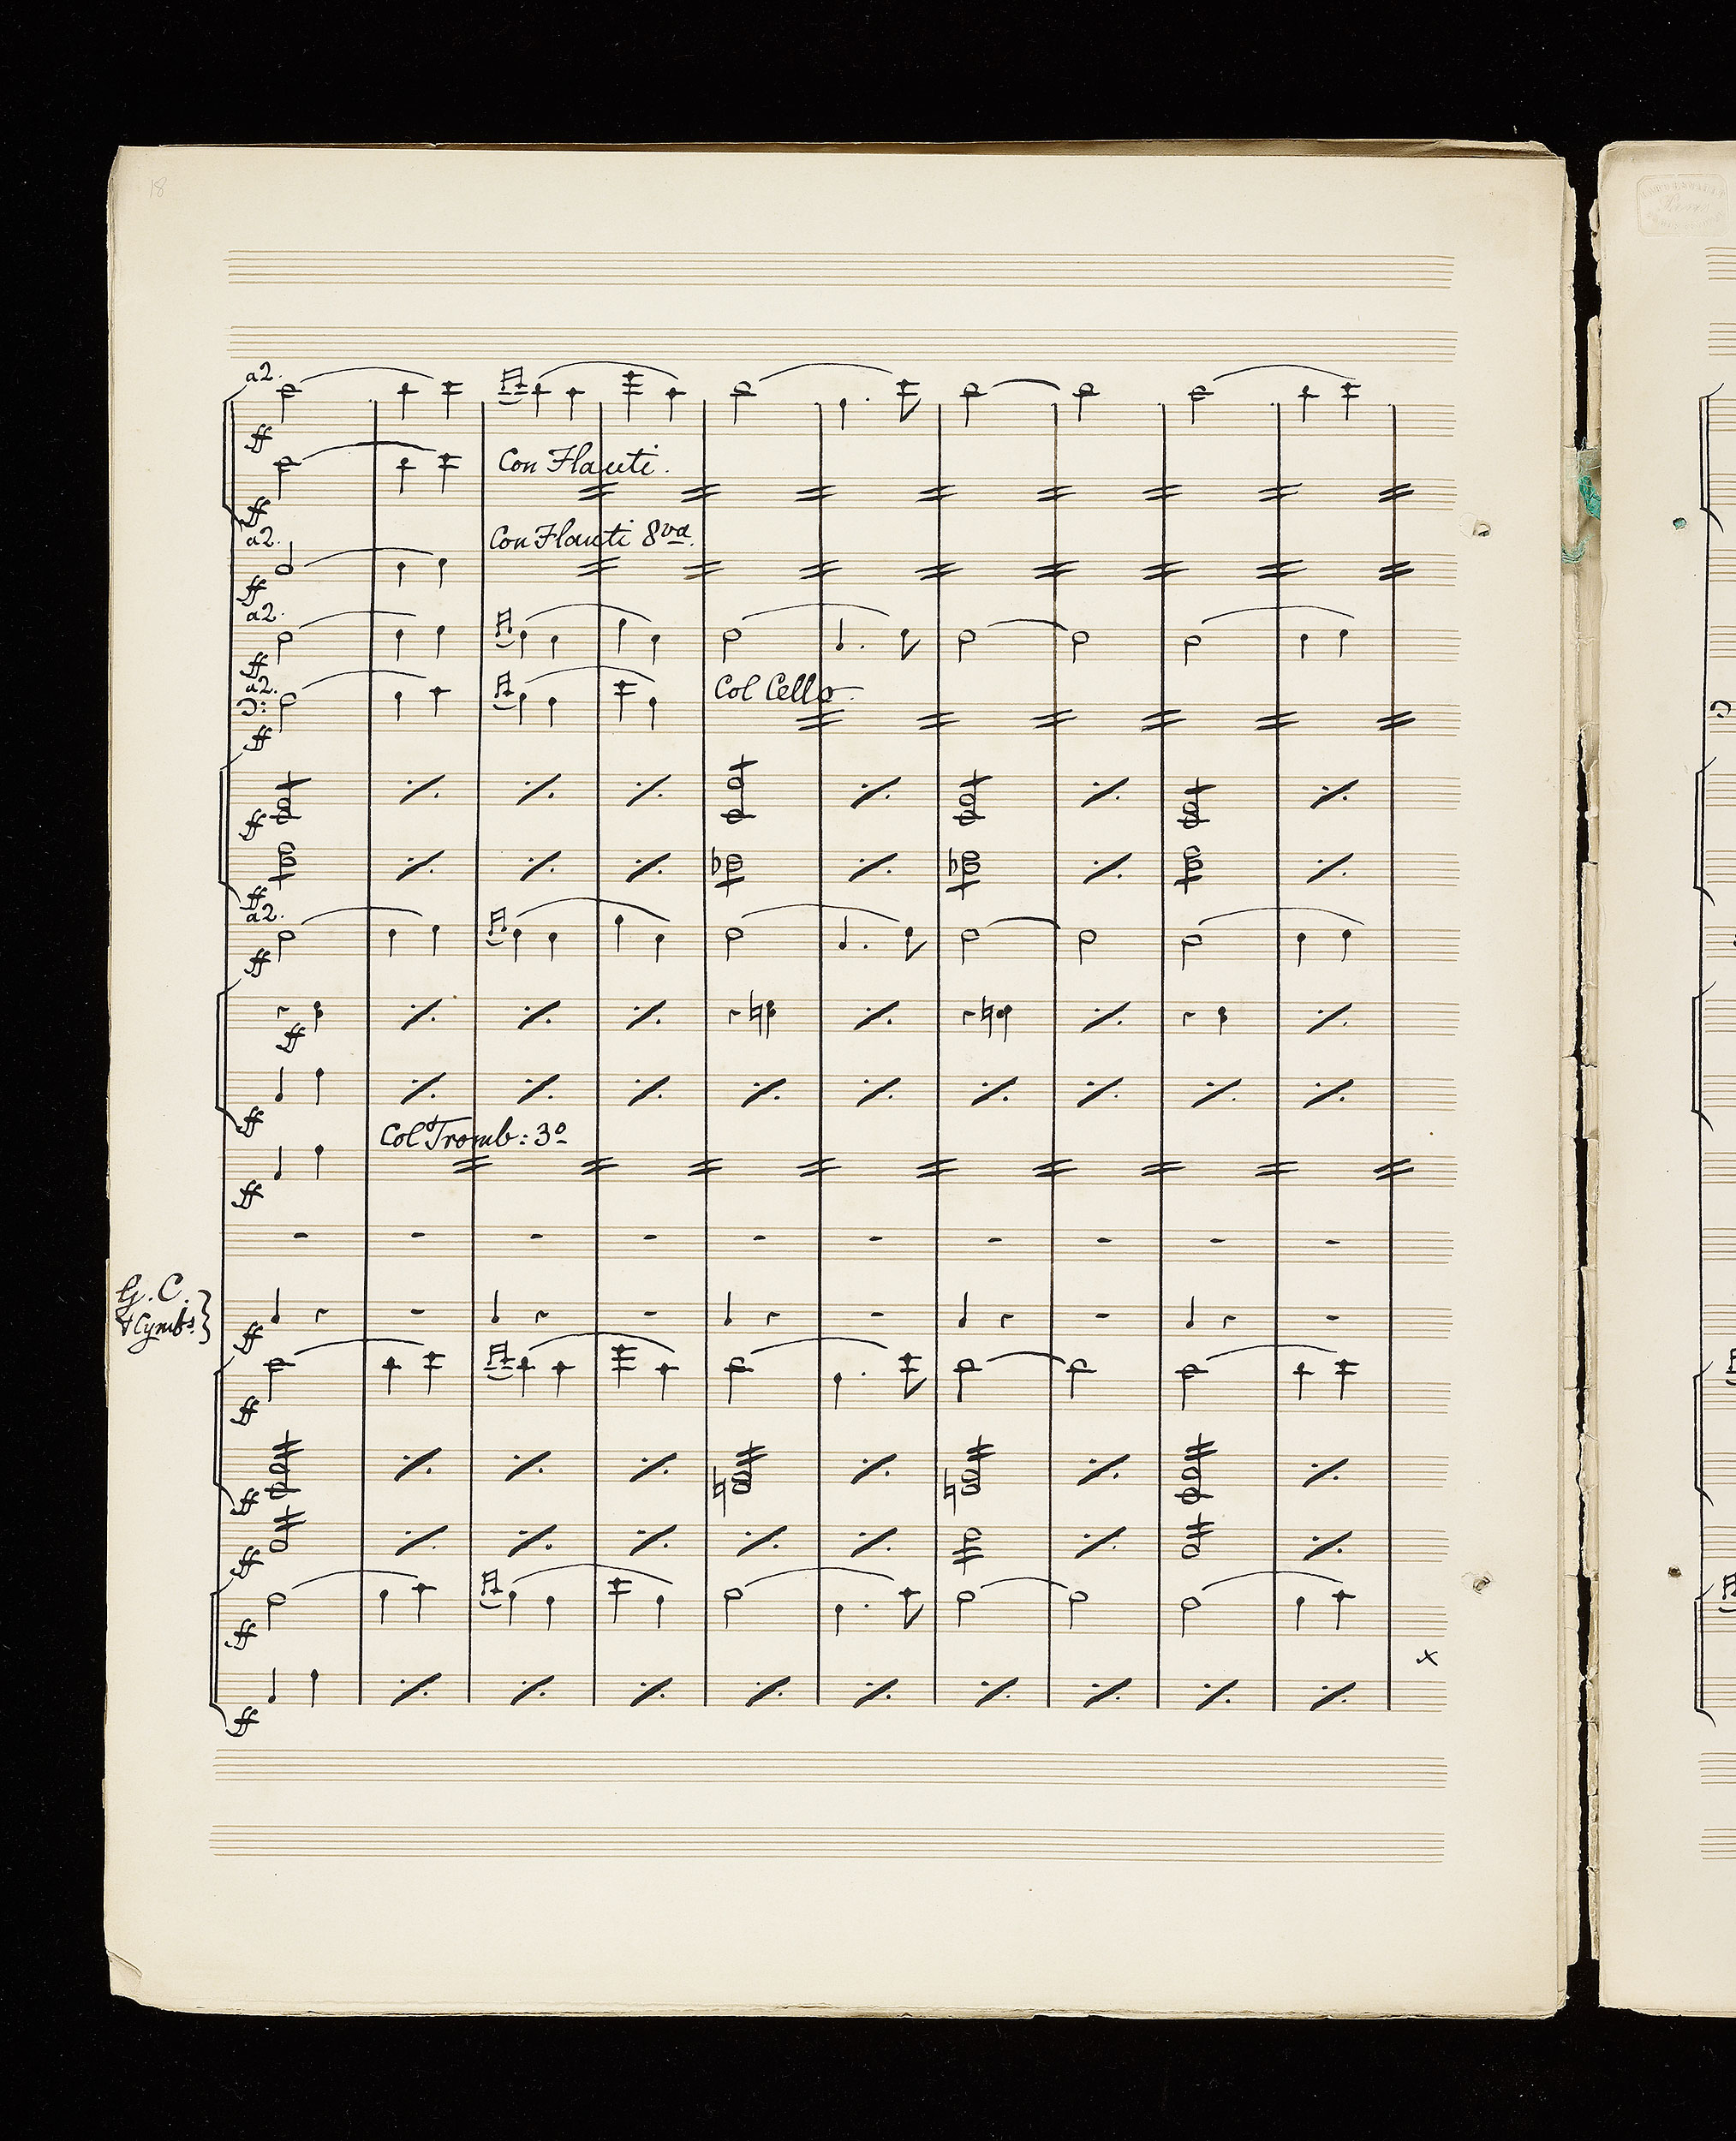 18
a2.
ff
Con Flauti.
ff
a2.
Con Flauti 8va.
ff
a2.
ff
a2.
Col Cello.
ff
ff
ff
a2.
ff
ff
ff
Col Tromb: 3o
ff
G. C.
& Cymbs.
ff
ff
ff
ff
ff
x
ff